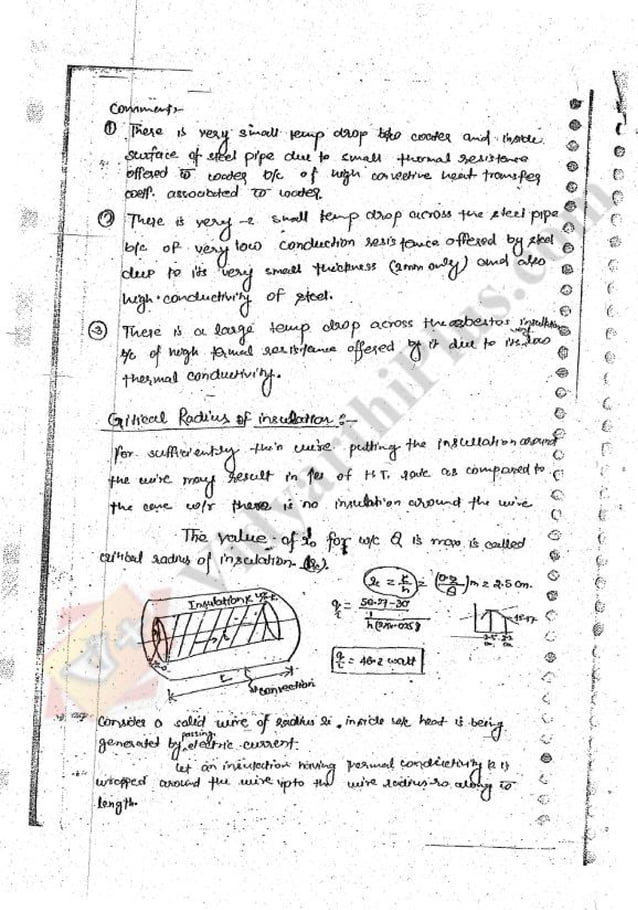 Comments:-
① There is very small temp drop b/w water and inside
surface of steel pipe due to small thermal resistance
offered to water b/c of high convective heat transfer
coeff. associated to water.
② There is very small temp drop across the steel pipe
b/c of very low conduction resistance offered by steel
due to its very small thickness (2mm only) and also
high conductivity of steel.
③ There is a large temp drop across the asbestos insulation
b/c of high termal resistance offered by it due to its very low
thermal conductivity.
Critical Radius of insulation :-
For sufficiently thin wire putting the insulation around
the wire may result in of H.T. rate as compared to
the case there is no insulation around the wire
The value of r₀ for w/c Q is max is called
critical radius of insulation (rc).
= 2.5 cm.
Insulation k
q/L = 
h(2π×.025)
q/L = watt
L
convection
Consider a solid wire of radius ri inside w/c heat is being
generated by passing electric current.
Let an insulation having thermal conductivity k is
wrapped around the wire upto the wire radius ro along
length.
VidyarthiPlus.com
V+